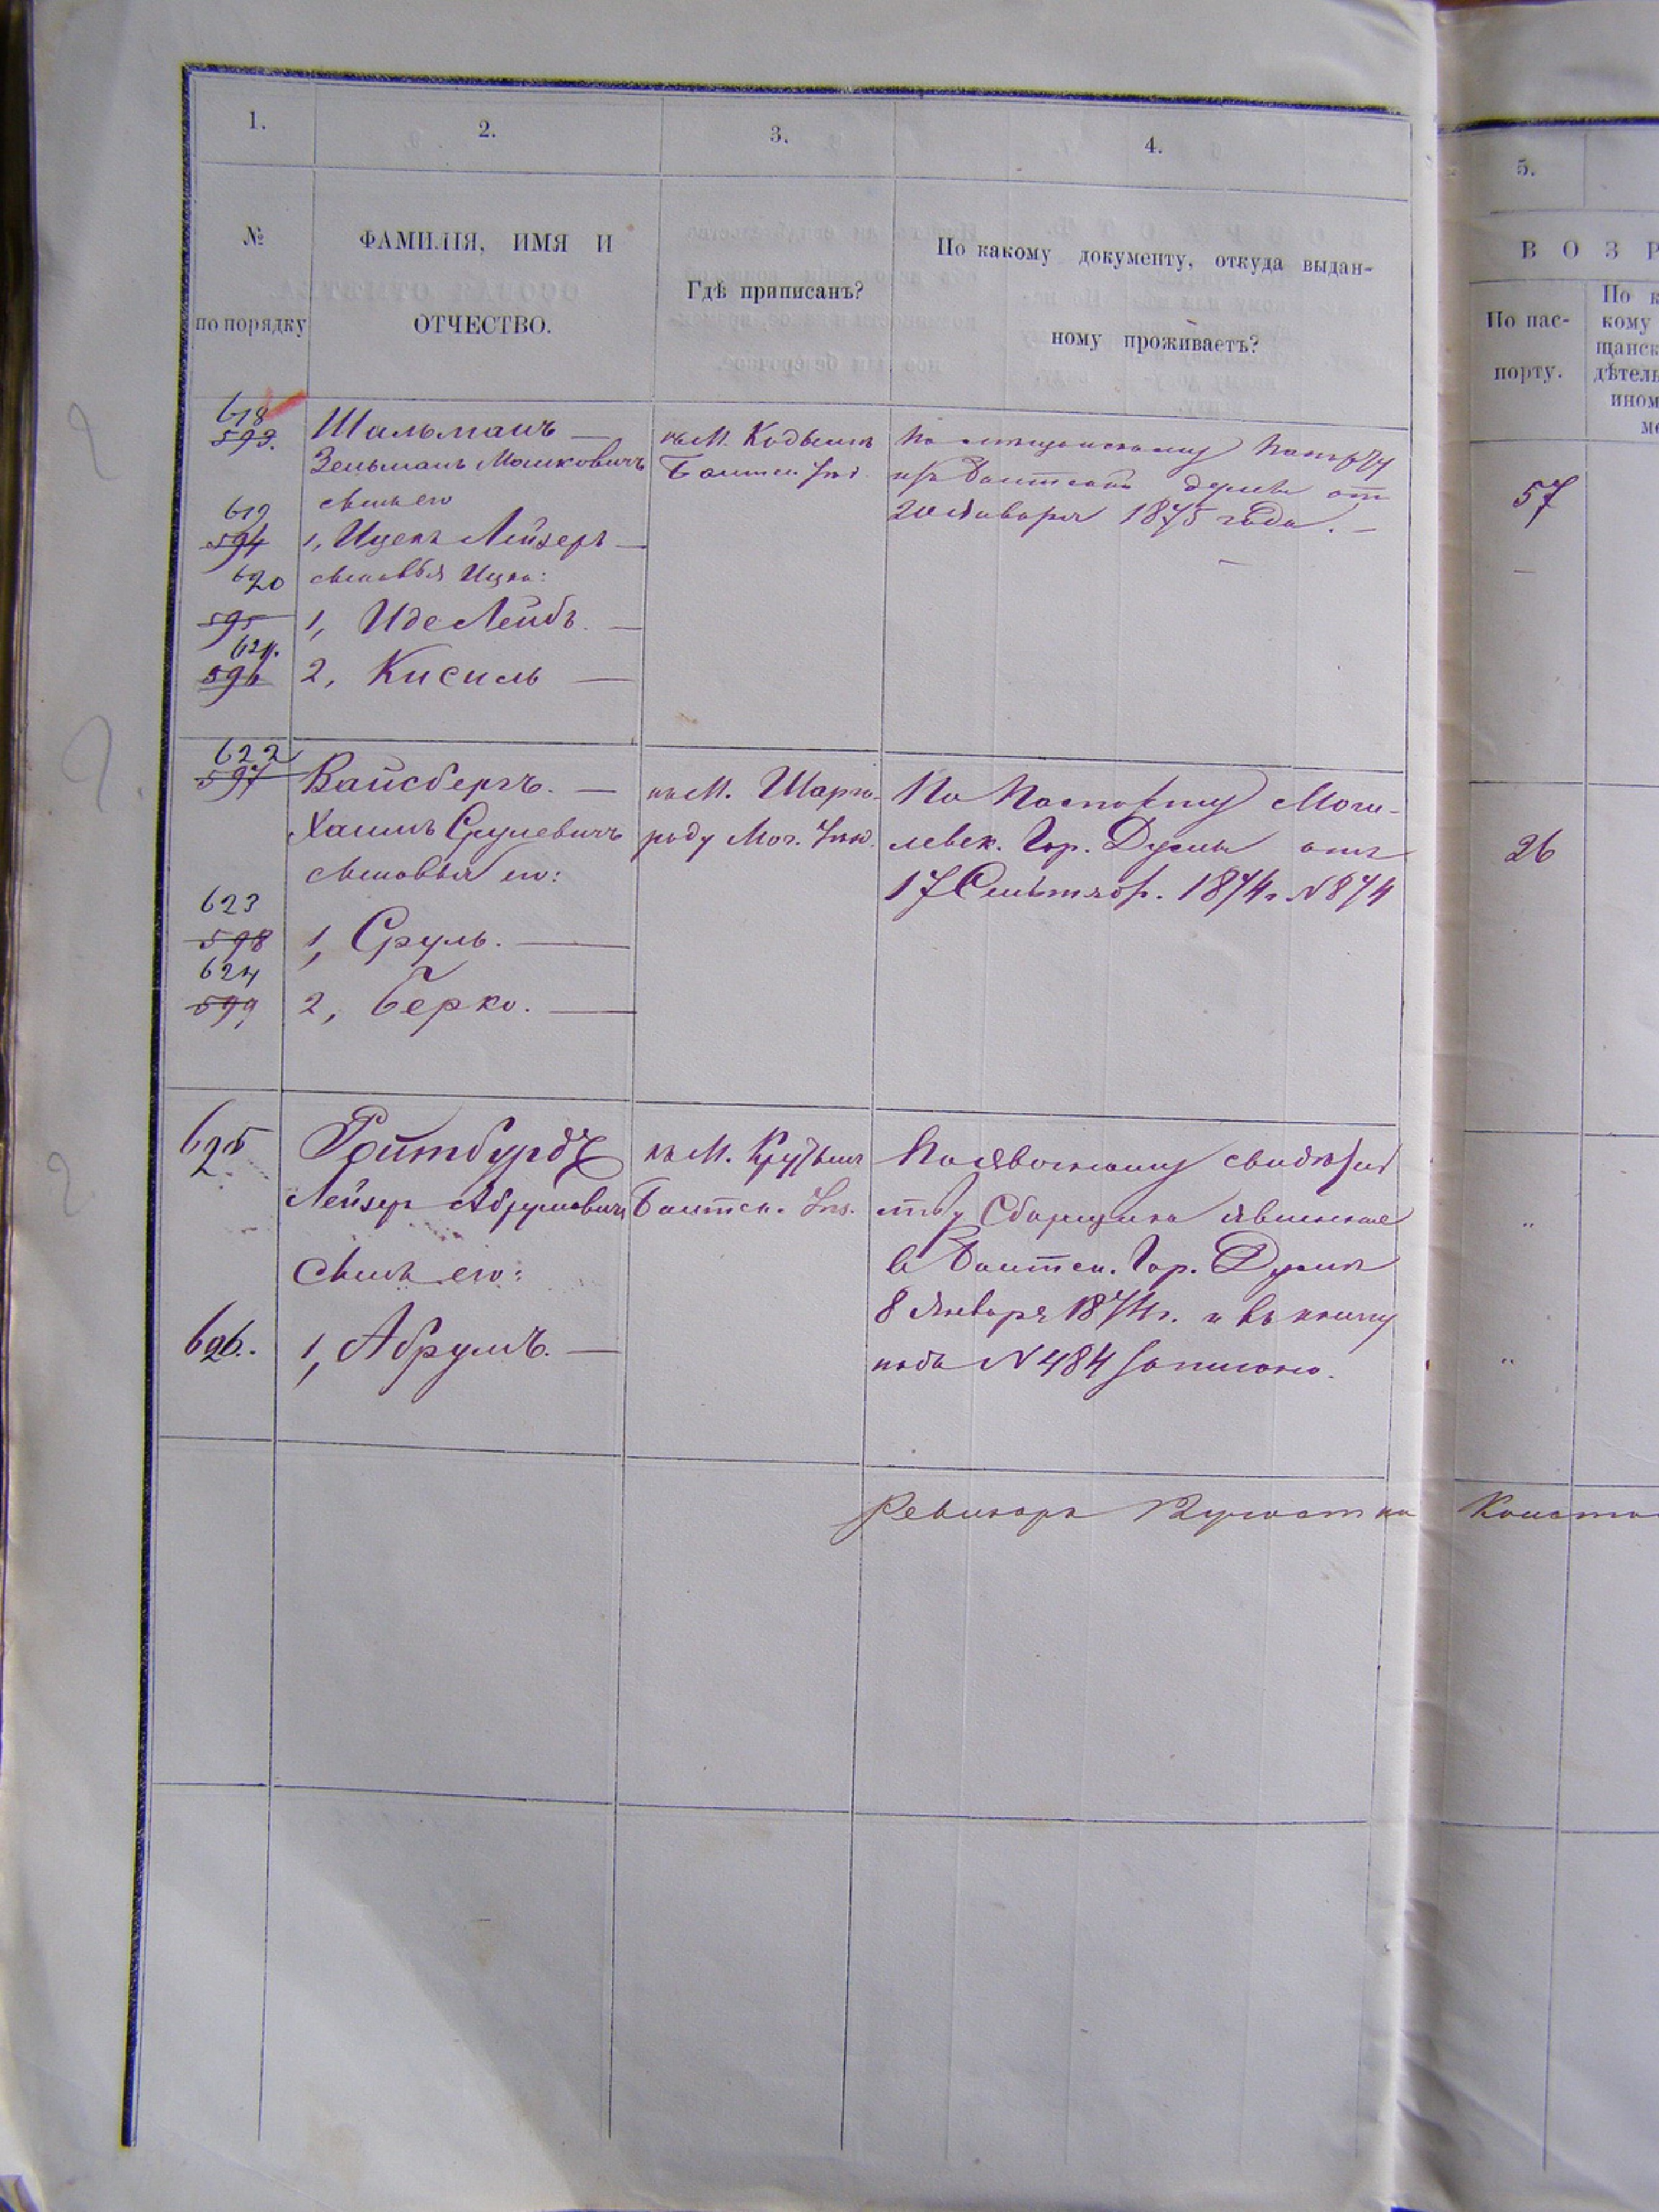 1.
2.
3.
4.
5.
№
по порядку
ФАМИЛІЯ, ИМЯ И
ОТЧЕСТВО.
Гдѣ приписанъ?
По какому документу, откуда выдан-
ному проживаетъ?
ВОЗР
По пас-
порту.
По к
кому
щанск
дѣтель
ином
ме
618
593.
Шальманъ —
Зельманъ Мошковичъ
сынъ его
къ М. Кодымѣ
Балтск. Уѣз.
По мѣщанскому
изъ Балтской думы от
20 Января 1875 года. —
57
619
594
1, Ицекъ Лейзеръ —
620
сыновья Ицка:
595
1, Иде Лейбъ. —
621.
596
2, Кисиль —
622
597
Вайсбергъ. —
Хаимъ Срулевичъ
сыновья его:
къ М. Шарго-
роду Мог. Уѣз.
По Паспорту Моги-
левск. Гор. Думы отъ
17 Сентябр. 1874 г. № 874
26
623
598
1, Сруль. —
624
599
2, Берко. —
625
Ройтбурдъ
Лейзер Абрумовичъ
сынъ его:
къ М.
Балтск. Уѣз.
По явочному свидѣтель
ству Сборщика явленное
в Балтск. Гор. Думѣ
8 Января 1874 г. и въ книгу
подъ № 484 записано.
626.
1, Абрумъ. —
Ревизоръ